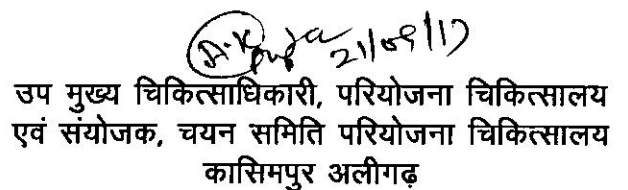 21/09/17
उप मुख्य चिकित्साधिकारी, परियोजना चिकित्सालय
एवं संयोजक, चयन समिति परियोजना चिकित्सालय
कासिमपुर अलीगढ़